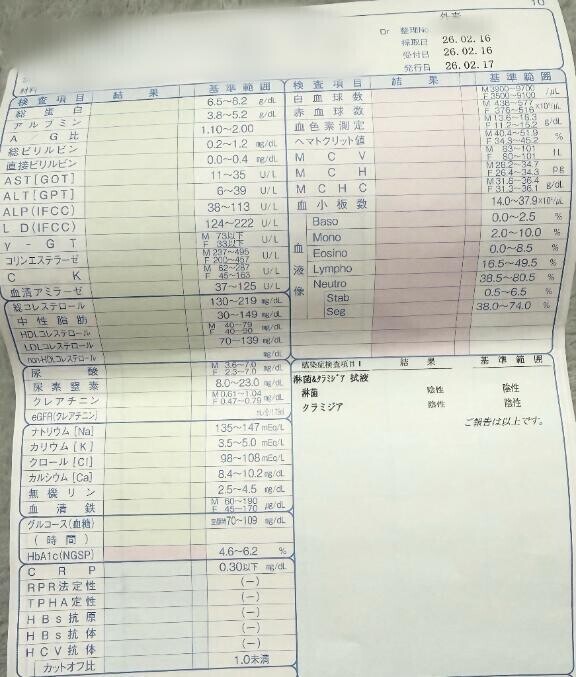 10
外来
Dr 整理No.
採取日 26.02.16
受付日 26.02.16
発行日 26.02.17
材料
検査項目 結果 基準範囲
総蛋白 6.5~8.2 g/dL
アルブミン 3.8~5.2 g/dL
A/G比 1.10~2.00
総ビリルビン 0.2~1.2 mg/dL
直接ビリルビン 0.0~0.4 mg/dL
AST[GOT] 11~35 U/L
ALT[GPT] 6~39 U/L
ALP(IFCC) 38~113 U/L
LD(IFCC) 124~222 U/L
γ-GT M 73以下 F 33以下 U/L
コリンエステラーゼ M 237~495 F 200~457 U/L
CK M 62~287 F 45~163 U/L
血清アミラーゼ 37~125 U/L
総コレステロール 130~219 mg/dL
中性脂肪 30~149 mg/dL
HDLコレステロール M 40~79 F 40~90 mg/dL
LDLコレステロール 70~139 mg/dL
non-HDLコレステロール mg/dL
尿酸 M 3.6~7.0 F 2.3~7.0 mg/dL
尿素窒素 8.0~23.0 mg/dL
クレアチニン M 0.61~1.04 F 0.47~0.79 mg/dL
eGFR(クレアチニン)
ナトリウム[Na] 135~147 mEq/L
カリウム[K] 3.5~5.0 mEq/L
クロール[Cl] 98~108 mEq/L
カルシウム[Ca] 8.4~10.2 mg/dL
無機リン 2.5~4.5 mg/dL
血清鉄 M 60~190 F 45~170 μg/dL
グルコース(血糖) 空腹時70~109 mg/dL
(時間)
HbA1c(NGSP) 4.6~6.2 %
CRP 0.30以下 mg/dL
RPR法定性 (-)
TPHA定性 (-)
HBs抗原 (-)
HBs抗体 (-)
HCV抗体 (-)
カットオフ比 1.0未満
検査項目 結果 基準範囲
白血球数 M 3900~9700 F 3500~9100 /μL
赤血球数 M 438~577 F 376~516 ×10⁴/μL
血色素測定 M 13.6~18.3 F 11.2~15.2 g/dL
ヘマトクリット値 M 40.4~51.9 F 34.3~45.2 %
MCV M 83~101 F 80~101 fL
MCH M 28.2~34.7 F 26.4~34.3 pg
MCHC M 31.8~36.4 F 31.3~36.1 g/dL
血小板数 14.0~37.9 ×10⁴/μL
血液像
Baso 0.0~2.5 %
Mono 2.0~10.0 %
Eosino 0.0~8.5 %
Lympho 16.5~49.5 %
Neutro 38.5~80.5 %
Stab 0.5~6.5 %
Seg 38.0~74.0 %
感染症検査項目1 結果 基準範囲
淋菌&クラミジア 試液
淋菌 陰性 陰性
クラミジア 陰性 陰性
ご報告は以上です。